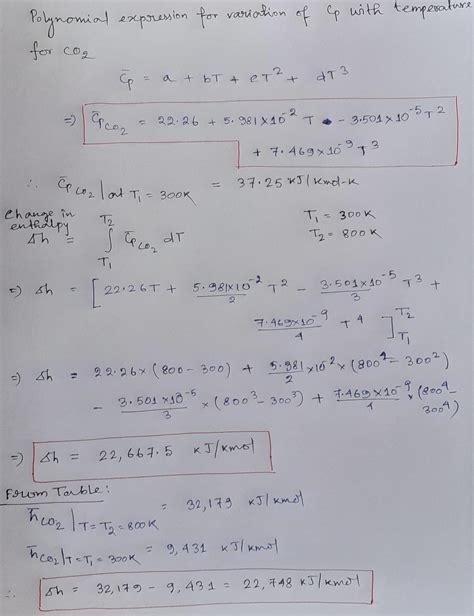 Polynomial expression for variation of Cp with temperature
for CO2
C̄p = a + bT + cT² + dT³
⇒) C̄p CO2 = 22.26 + 5.981×10⁻² T - 3.501×10⁻⁵ T²
+ 7.469×10⁻⁹ T³
∴ C̄p CO2 | at T1 = 300K = 37.25 kJ/kmol-K
Change in enthalpy Δh = ∫ T1 T2 C̄p CO2 dT T1 = 300K
T2 = 800K
⇒) Δh = [ 22.26T + 5.981×10⁻²/2 T² - 3.501×10⁻⁵/3 T³ +
7.469×10⁻⁹/4 T4 ] T2 T1
⇒) Δh = 22.26×(800-300) + 5.981/2 ×10⁻² × (800² - 300²)
- 3.501×10⁻⁵/3 × (800³ - 300³) + 7.469×10⁻⁹/4 × (800⁴ -
300⁴)
⇒) Δh = 22,667.5 kJ/kmol
From Table:
h̄CO2 | T=T2=800K = 32,179 kJ/kmol
h̄CO2 | T=T1=300K = 9,431 kJ/kmol
∴ Δh = 32,179 - 9,431 = 22,748 kJ/kmol